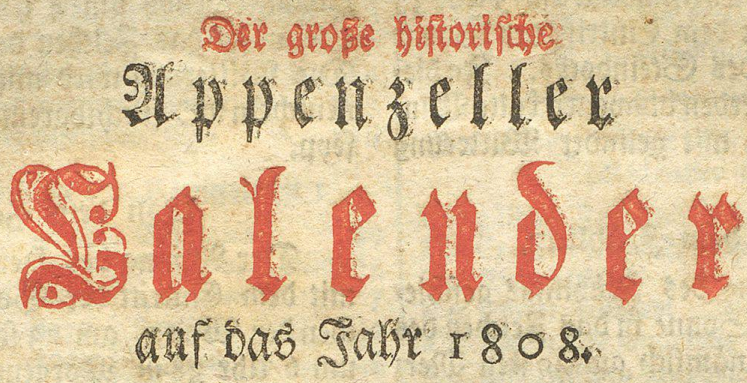 Der große historische
Appenzeller
Calender
auf das Jahr 1808.